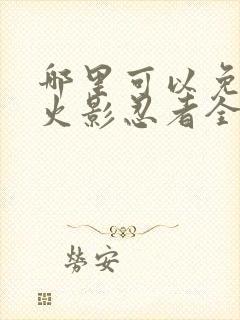 哪里可以免
火影忍者全
劳安